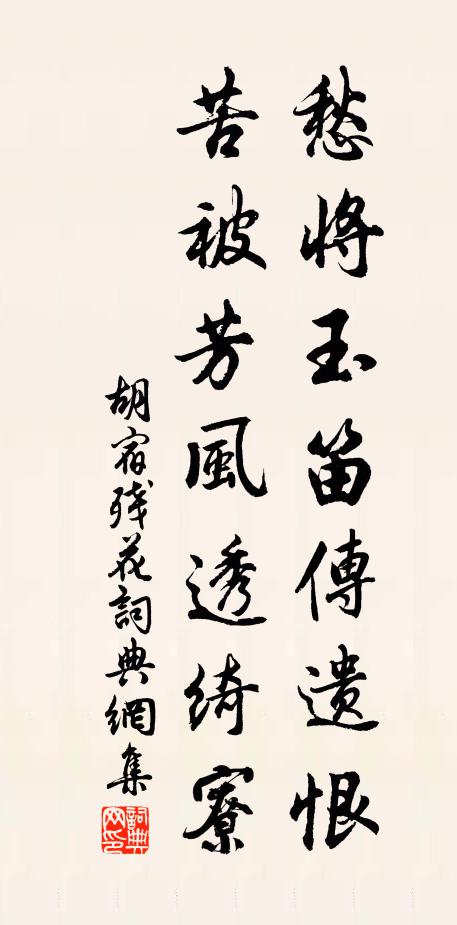 愁將玉笛傳遺恨
苦被芳風透綺寮
胡宿残花詞典網集
詞典網印